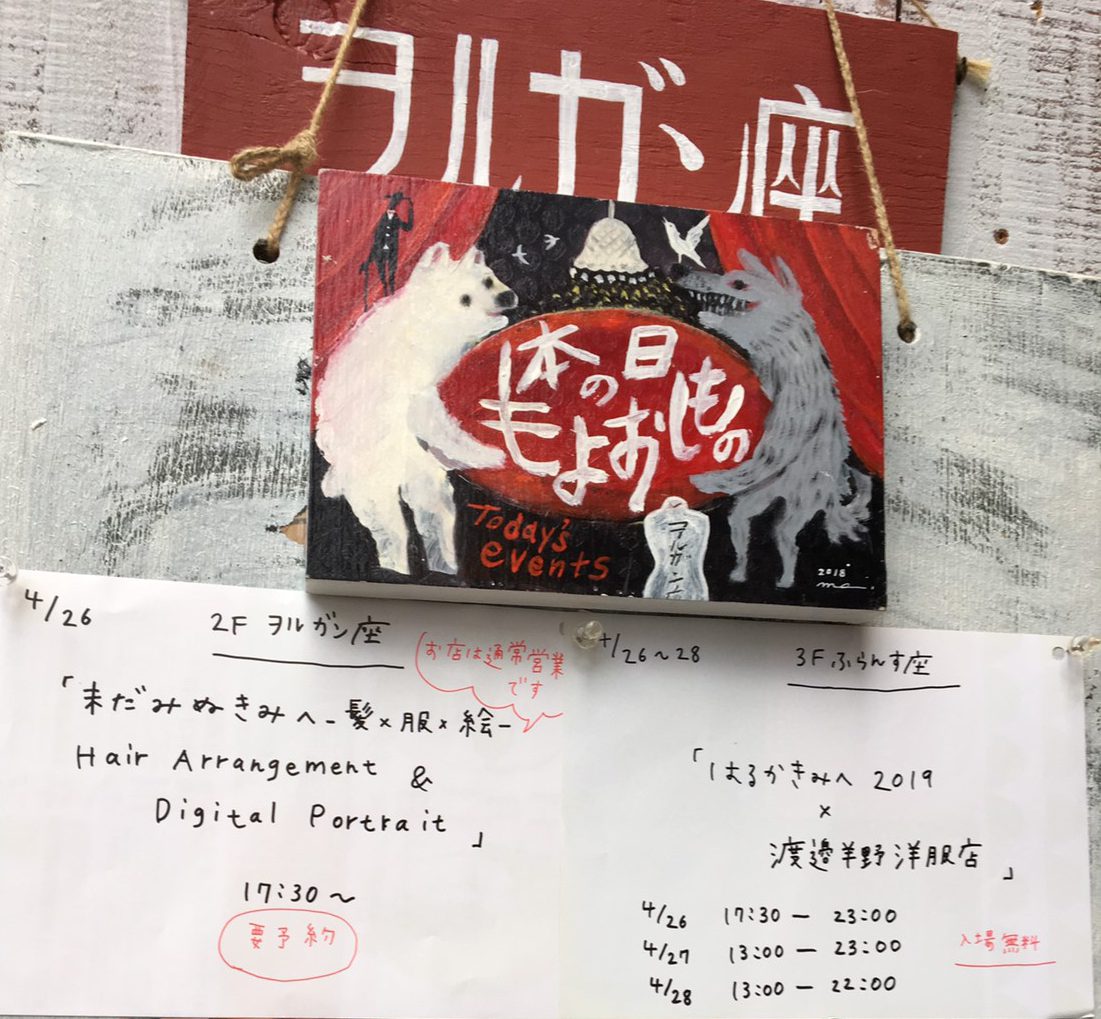 ヲルガン座
本の日
もよおしもの
Today's
events
ヲルガン
2018
4/26
2F ヲルガン座
お店は通常営業
です
「未だみぬきみへ-髪×服×絵-
Hair Arrangement &
Digital Portrait」
17:30～
要予約
4/26～28
3F ふらんす座
「はるかきみへ 2019
×
渡邉羊野洋服店」
4/26 17:30 － 23:00
4/27 13:00 － 23:00
4/28 13:00 － 22:00
入場無料